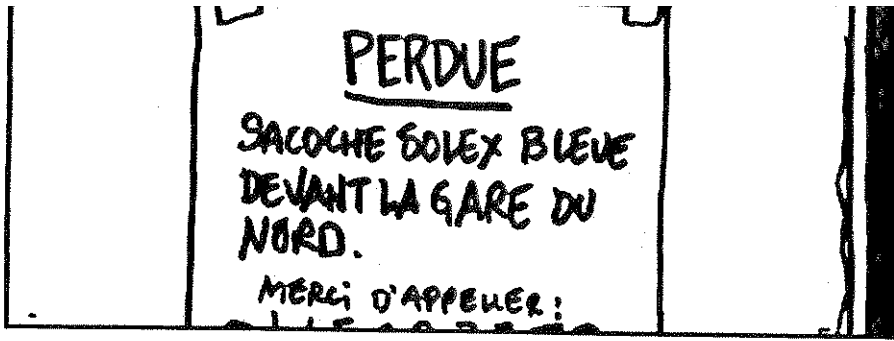 PERDUE
SACOCHE SOLEX BLEUE
DEVANT LA GARE DU
NORD.
MERCI D'APPELER: